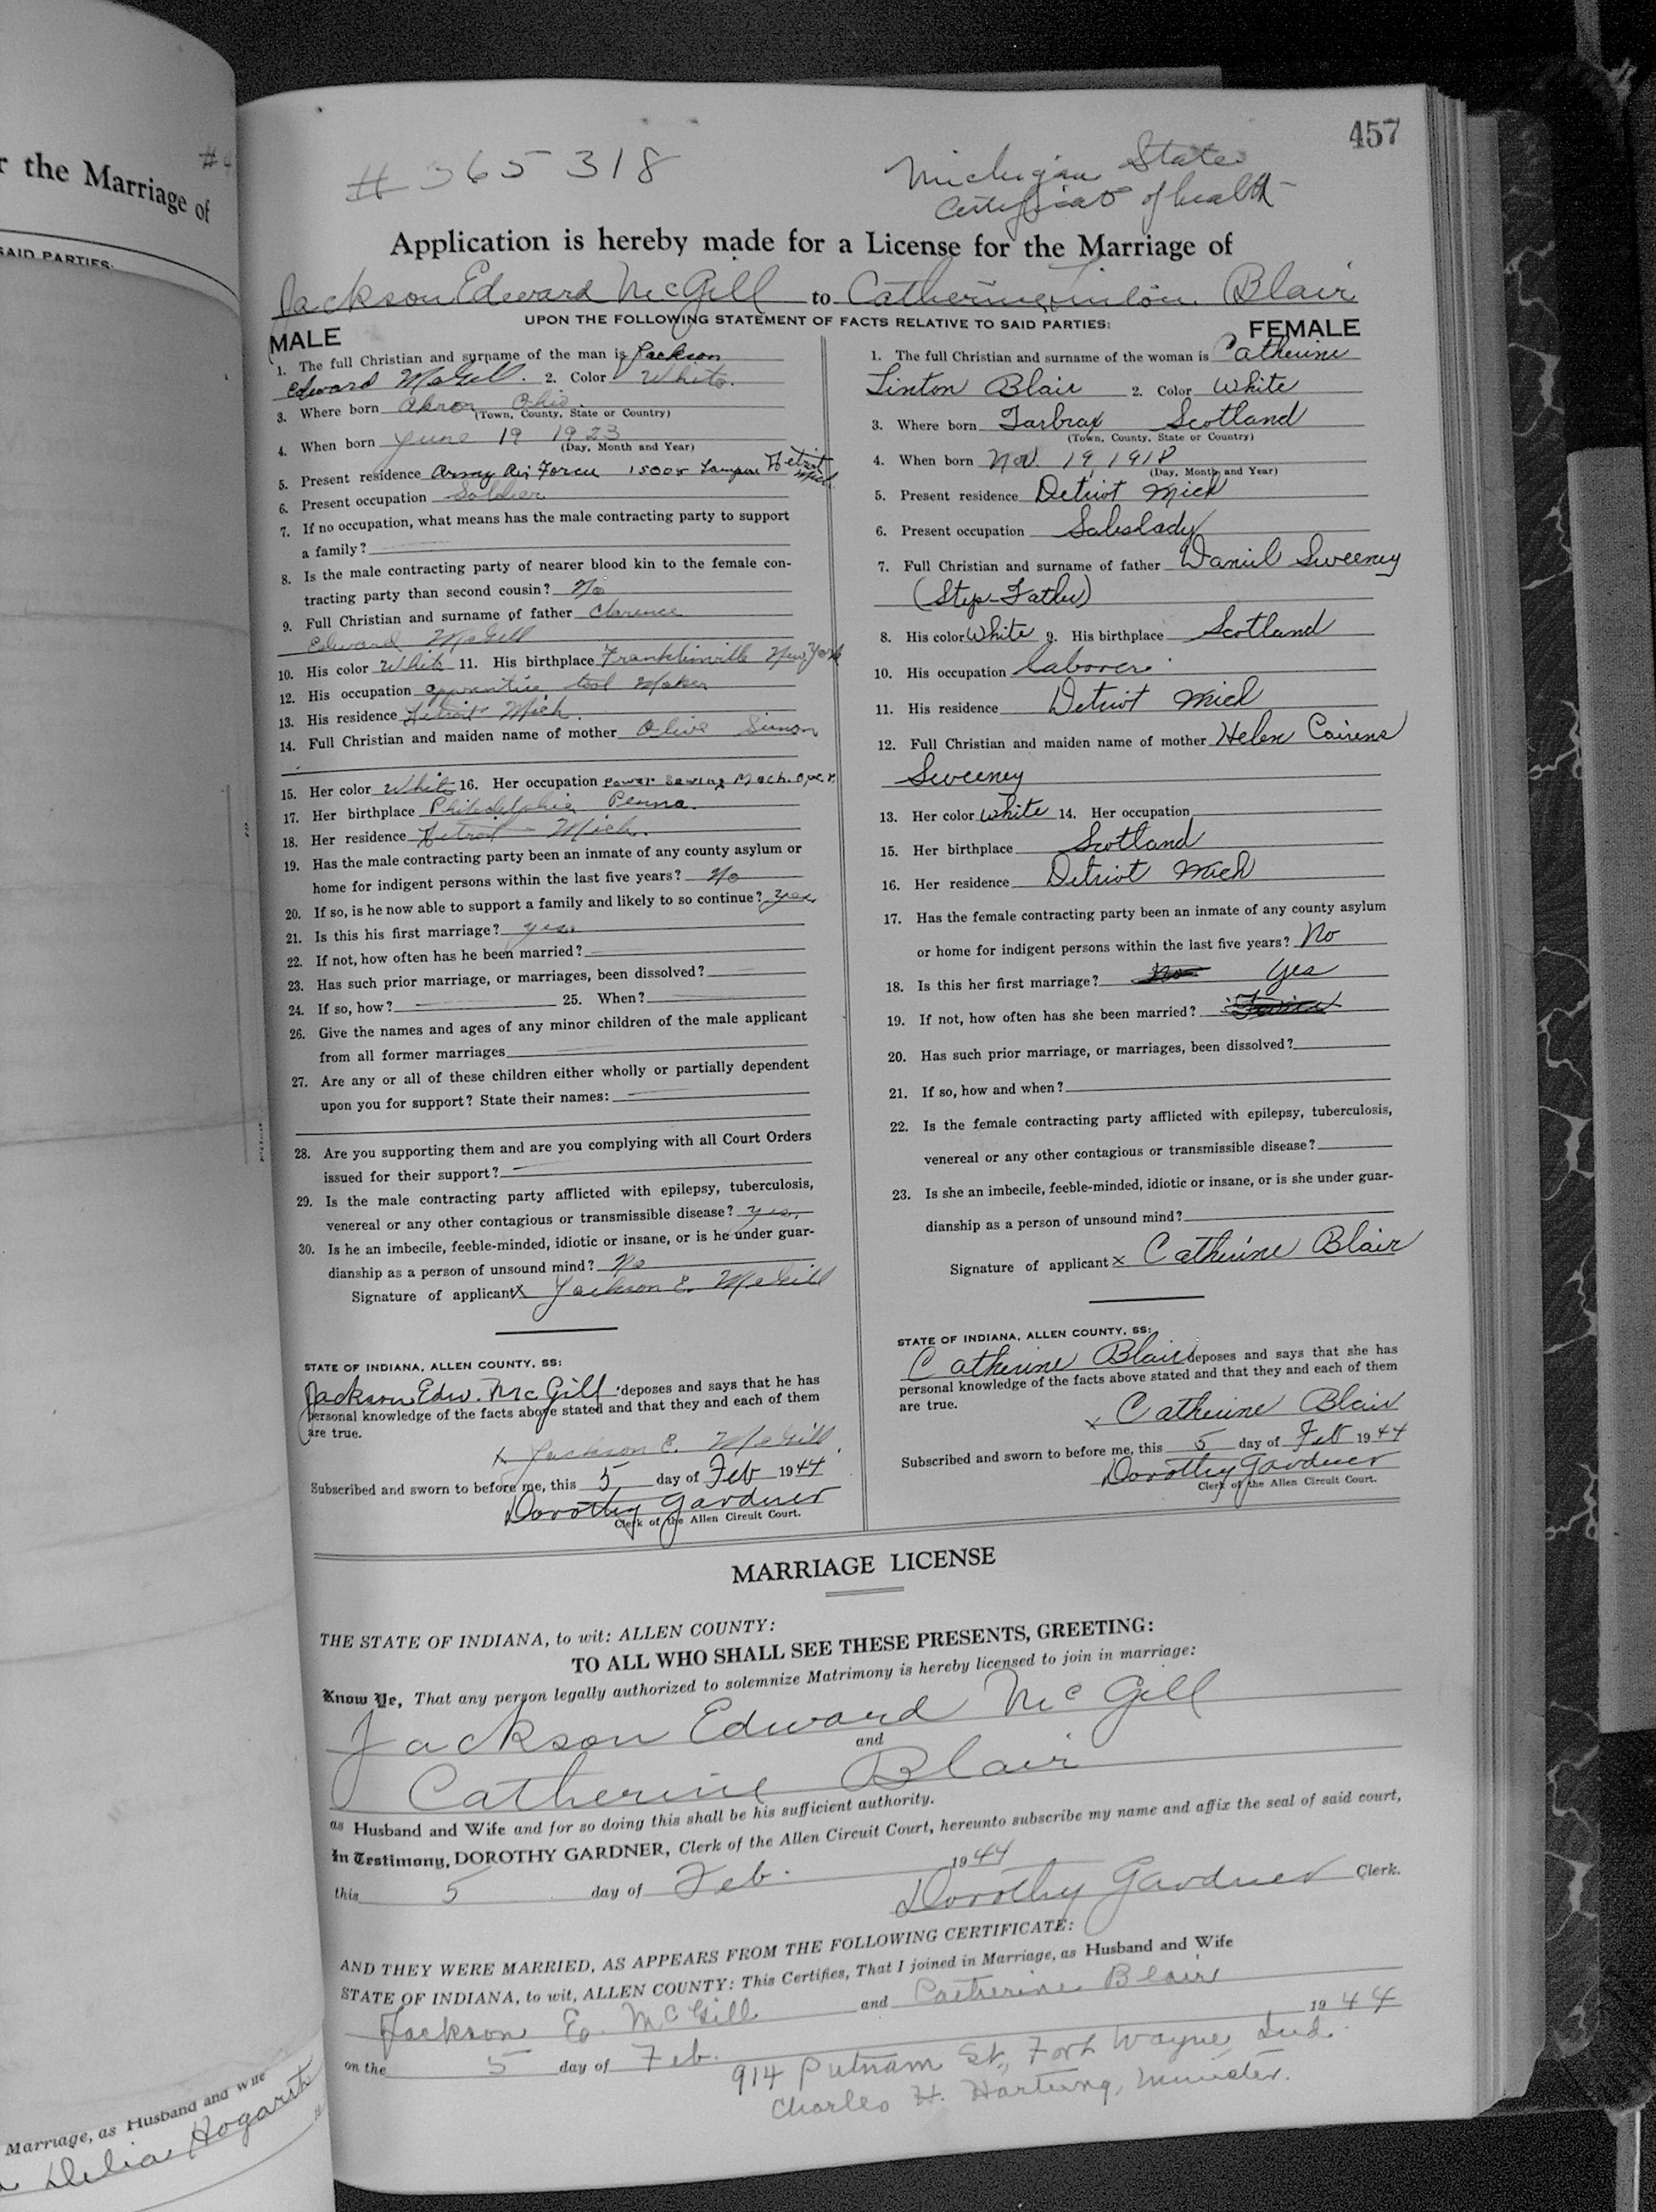 r the Marriage of
SAID PARTIES:
Marriage, as Husband and Wife
Delia Hogarth
457
# 365 318
Michigan State
Certificate of health
Application is hereby made for a License for the Marriage of
Jackson Edward McGill to Catherine Linton Blair
UPON THE FOLLOWING STATEMENT OF FACTS RELATIVE TO SAID PARTIES:
MALE
1. The full Christian and surname of the man is Jackson
Edward McGill. 2. Color White.
3. Where born Akron Ohio.
(Town, County, State or Country)
4. When born June 19 1923
(Day, Month and Year)
5. Present residence Army Air Force 15008 Detroit Mich.
6. Present occupation Soldier
7. If no occupation, what means has the male contracting party to support
a family?
8. Is the male contracting party of nearer blood kin to the female con-
tracting party than second cousin? No
9. Full Christian and surname of father Clarence
Edward McGill
10. His color White 11. His birthplace Franklinville New York
12. His occupation apprentice tool Maker
13. His residence Detroit Mich.
14. Full Christian and maiden name of mother Olive Simon
15. Her color White 16. Her occupation Power Sewing Mach. Oper.
17. Her birthplace Philadelphia Penna.
18. Her residence Detroit - Mich.
19. Has the male contracting party been an inmate of any county asylum or
home for indigent persons within the last five years? No
20. If so, is he now able to support a family and likely to so continue? yes
21. Is this his first marriage? yes
22. If not, how often has he been married?
23. Has such prior marriage, or marriages, been dissolved?
24. If so, how? 25. When?
26. Give the names and ages of any minor children of the male applicant
from all former marriages
27. Are any or all of these children either wholly or partially dependent
upon you for support? State their names:
28. Are you supporting them and are you complying with all Court Orders
issued for their support?
29. Is the male contracting party afflicted with epilepsy, tuberculosis,
venereal or any other contagious or transmissible disease? yes,
30. Is he an imbecile, feeble-minded, idiotic or insane, or is he under guar-
dianship as a person of unsound mind? No
Signature of applicant x Jackson E. McGill
STATE OF INDIANA, ALLEN COUNTY, SS:
Jackson Edw. McGill deposes and says that he has
personal knowledge of the facts above stated and that they and each of them
are true.
x Jackson E. McGill
Subscribed and sworn to before me, this 5 day of Feb 1944
Dorothy Gardner
Clerk of the Allen Circuit Court.
FEMALE
1. The full Christian and surname of the woman is Catherine
Linton Blair 2. Color White
3. Where born Tarbrax Scotland
(Town, County, State or Country)
4. When born Nov. 19 1918
(Day, Month and Year)
5. Present residence Detriot Mich
6. Present occupation Saleslady
7. Full Christian and surname of father Daniel Sweeney
(Step-Father)
8. His color White 9. His birthplace Scotland
10. His occupation laborer
11. His residence Detriot Mich
12. Full Christian and maiden name of mother Helen Cairens
Sweeney
13. Her color White 14. Her occupation
15. Her birthplace Scotland
16. Her residence Detriot Mich
17. Has the female contracting party been an inmate of any county asylum
or home for indigent persons within the last five years? No
18. Is this her first marriage? No Yes
19. If not, how often has she been married?
20. Has such prior marriage, or marriages, been dissolved?
21. If so, how and when?
22. Is the female contracting party afflicted with epilepsy, tuberculosis,
venereal or any other contagious or transmissible disease?
23. Is she an imbecile, feeble-minded, idiotic or insane, or is she under guar-
dianship as a person of unsound mind?
Signature of applicant x Catherine Blair
STATE OF INDIANA, ALLEN COUNTY, SS:
Catherine Blair deposes and says that she has
personal knowledge of the facts above stated and that they and each of them
are true.
x Catherine Blair
Subscribed and sworn to before me, this 5 day of Feb 1944
Dorothy Gardner
Clerk of the Allen Circuit Court.
MARRIAGE LICENSE
THE STATE OF INDIANA, to wit: ALLEN COUNTY:
TO ALL WHO SHALL SEE THESE PRESENTS, GREETING:
Know Ye, That any person legally authorized to solemnize Matrimony is hereby licensed to join in marriage:
Jackson Edward McGill
and
Catherine Blair
as Husband and Wife and for so doing this shall be his sufficient authority.
In Testimony, DOROTHY GARDNER, Clerk of the Allen Circuit Court, hereunto subscribe my name and affix the seal of said court,
this 5 day of Feb. 1944
Dorothy Gardner Clerk.
AND THEY WERE MARRIED, AS APPEARS FROM THE FOLLOWING CERTIFICATE:
STATE OF INDIANA, to wit, ALLEN COUNTY: This Certifies, That I joined in Marriage, as Husband and Wife
Jackson E. McGill and Catherine Blair
on the 5 day of Feb. 1944
914 Putnam St., Fort Wayne, Ind.
Charles H. Hartung, Minister.